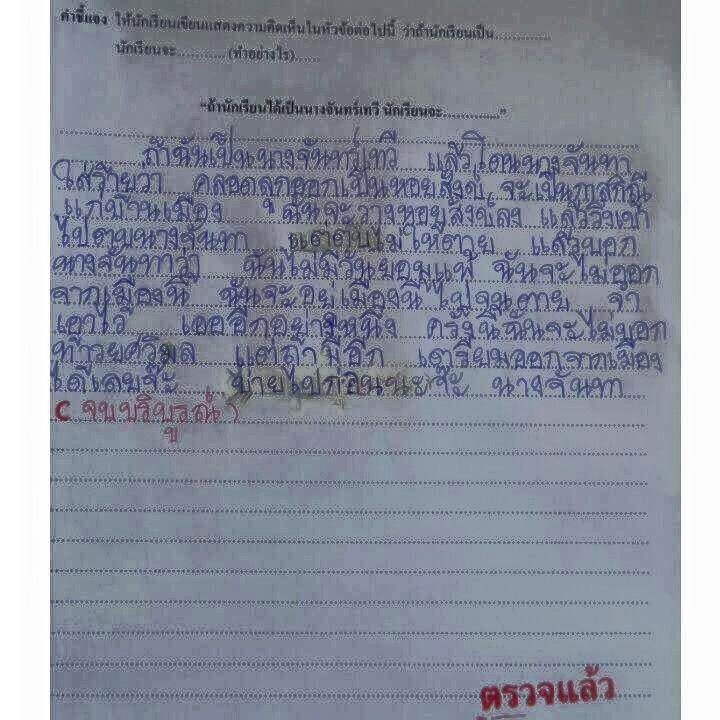 คำชี้แจง ให้นักเรียนเขียนแสดงความคิดเห็นในหัวข้อต่อไปนี้ ว่าถ้านักเรียนเป็น.............
นักเรียนจะ........... (ทำอย่างไร)......
“ถ้านักเรียนได้เป็นนางจันทร์เทวี นักเรียนจะ.............”
ถ้าฉันเป็นนางจันทร์เทวี แล้วโดนนางจันทา
ใส่ร้ายว่า คลอดลูกออกเป็นหอยสังข์ จะเป็นกาลกิณี
แก่บ้านเมือง ฉันจะวางหอยสังข์ลง แล้ววิ่งเข้า
ไปตบนางจันทา แต่ตบไม่ให้ตาย แล้วบอก
นางจันทาว่า ฉันไม่มีวันยอมแพ้ ฉันจะไม่ออก
จากเมืองนี้ ฉันจะอยู่เมืองนี้ไปจนตาย จำ
เอาไว้ เออ อีกอย่างหนึ่ง ครั้งนี้ฉันจะไม่บอก
ท้าวยศวิมล แต่ถ้ามีอีก เตรียมออกจากเมือง
ได้เลยจ๊ะ บ๋ายไปก่อนนะจ๊ะ นางจันทา
( จบบริบูรณ์ )
ตรวจแล้ว